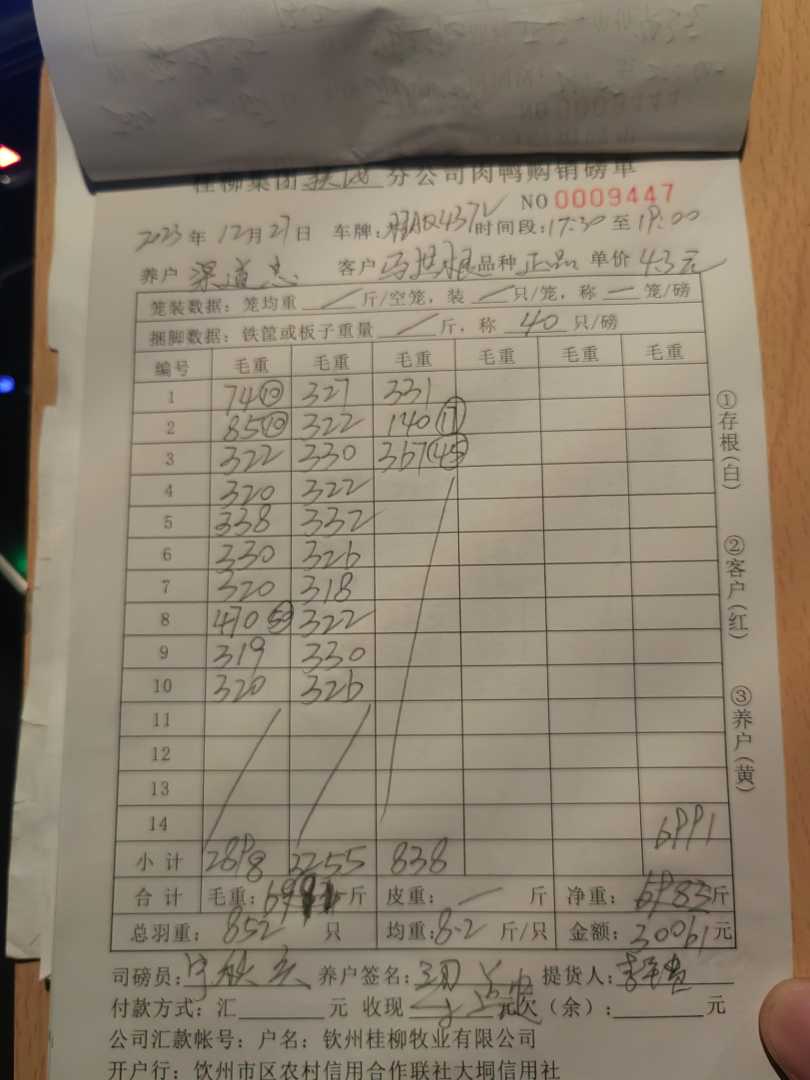 桂柳集团 分公司肉鸭购销磅单
NO 0009447
2023年12月27日 车牌: 时间段:17:30至19:00
养户 渠道忠 客户 品种 正品 单价 4.3元
笼装数据: 笼均重 / 斤/空笼, 装 / 只/笼, 称 一 笼/磅
捆脚数据: 铁筐或板子重量 / 斤, 称 40 只/磅
编号 毛重 毛重 毛重 毛重 毛重 毛重
1 74⑩ 327 331
2 85⑩ 322 140⑰
3 322 330 367㊺
4 320 322
5 338 332
6 330 326
7 320 318
8 470 322
9 319 330
10 320 326
11
12
13
14 6991
小计 2898 3255 838
合计 毛重: 斤 皮重: 一 斤 净重: 6983斤
总羽重: 852 只 均重:8.2 斤/只 金额: 30061元
司磅员: 养户签名: 提货人:
付款方式: 汇 元 收现 元 欠(余): 元
公司汇款帐号: 户名: 钦州桂柳牧业有限公司
开户行: 钦州市区农村信用合作联社大垌信用社
①存根(白)
②客户(红)
③养户(黄)